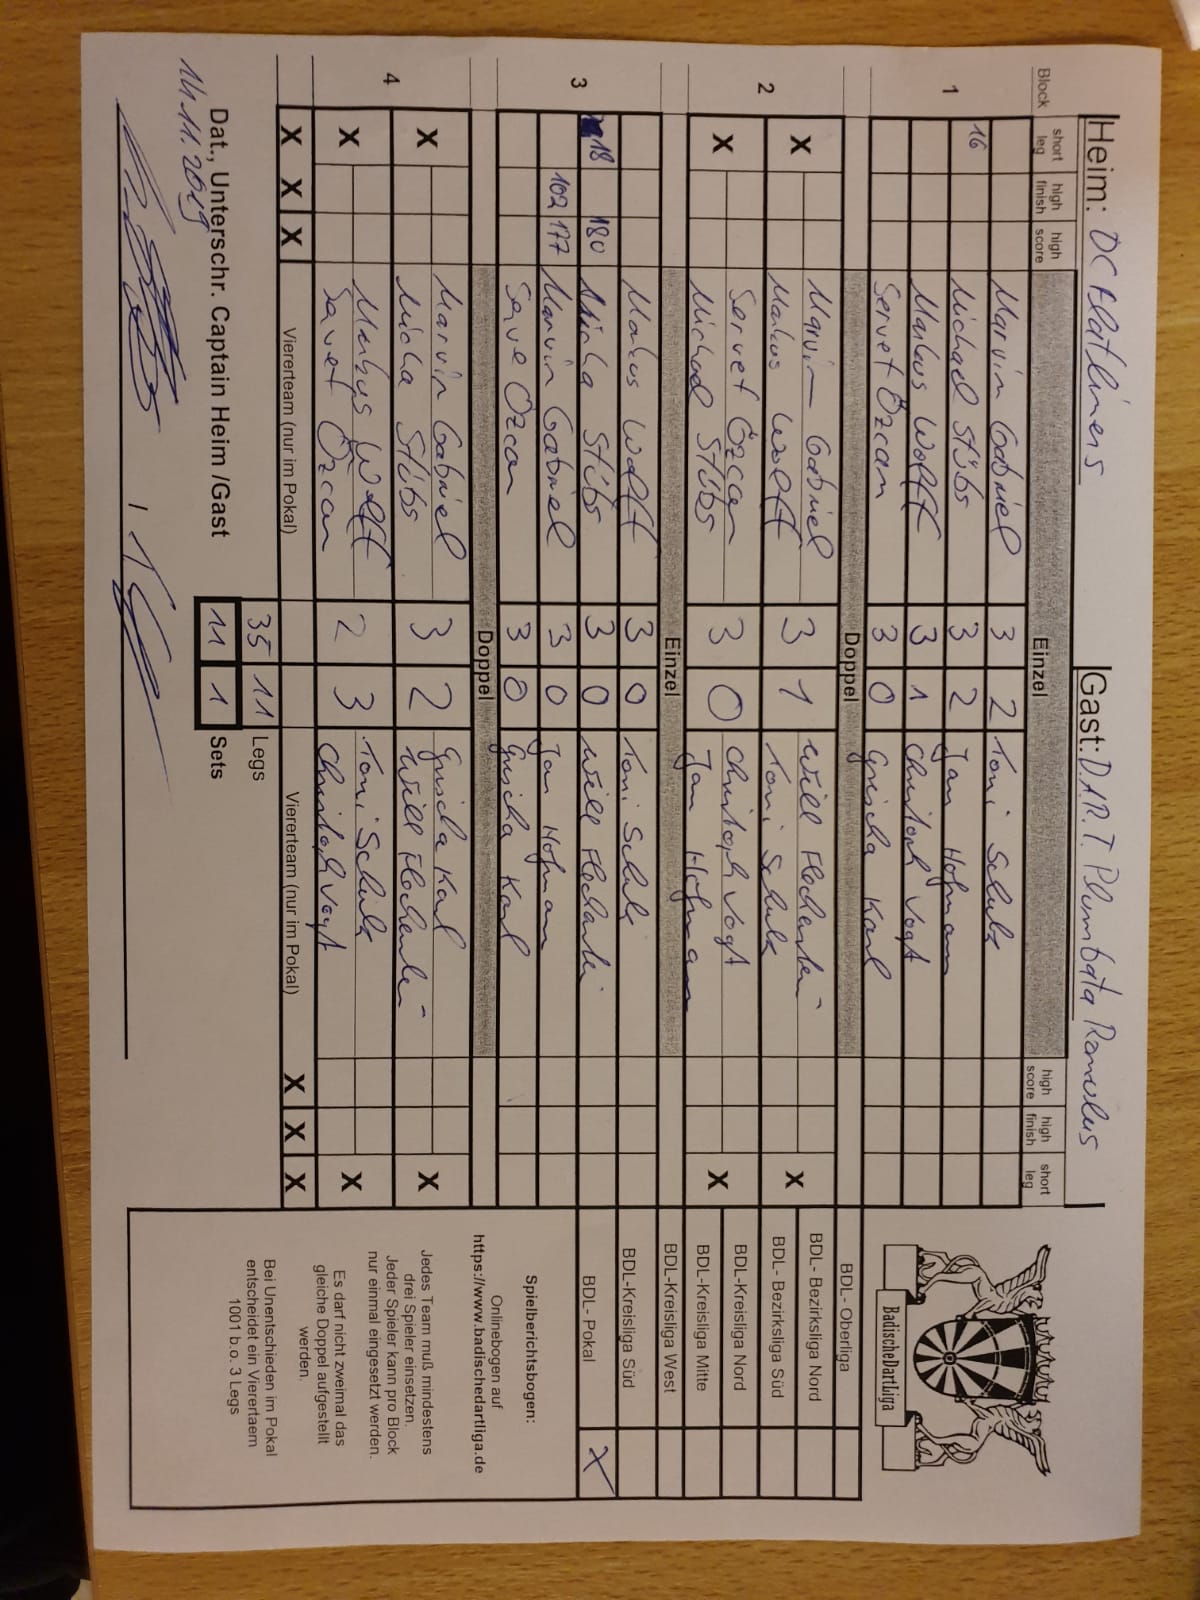 Heim: DC Flatliners Gast: D.A.R.T. Plumbata Romulus
Block short leg high finish high score Einzel high score high finish short leg
1
Marvin Gabriel 3 2 Toni Schulz
16 Michael Stübs 3 2 Jan Hofmann
Markus Wolff 3 1 Christoph Vogt
Servet Özcan 3 0 Grischa Karl
Doppel
2
X Marvin Gabriel 3 1 Will X
Markus Wolff Toni Schulz
X Servet Özcan 3 0 Christoph Vogt X
Michael Stübs Jan Hofmann
Einzel
3
Markus Wolff 3 0 Toni Schulz
18 180 Micha Stübs 3 0 Will
102 177 Marvin Gabriel 3 0 Jan Hofmann
Save Özcan 3 0 Grischa Karl
Doppel
4
X Marvin Gabriel 3 2 Grischa Karl X
Micha Stübs Will
X Markus Wolff 2 3 Toni Schulz X
Savet Özcan Christoph Vogt
X X X Viererteam (nur im Pokal) Viererteam (nur im Pokal) X X X
35 11 Legs
11 1 Sets
Dat., Unterschr. Captain Heim /Gast
14.11.2019
/
BadischeDartLiga
BDL- Oberliga
BDL- Bezirksliga Nord
BDL- Bezirksliga Süd
BDL-Kreisliga Nord
BDL-Kreisliga Mitte
BDL-Kreisliga West
BDL-Kreisliga Süd
BDL- Pokal X
Spielberichtsbogen:
Onlinebogen auf
https://www.badischedartliga.de
Jedes Team muß mindestens
drei Spieler einsetzen.
Jeder Spieler kann pro Block
nur einmal eingesetzt werden.
Es darf nicht zweimal das
gleiche Doppel aufgestellt
werden.
Bei Unentschieden im Pokal
entscheidet ein Vierertaem
1001 b.o. 3 Legs